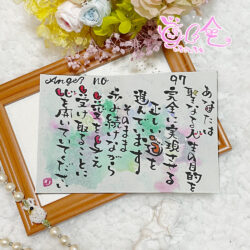 Angel no 97
あなたは
聖なる人生の目的を
完全に実現させる
正しい道を
進んでいます
そのまま
歩み続けながら
愛を与え
受け取ることに
心を開いていてください